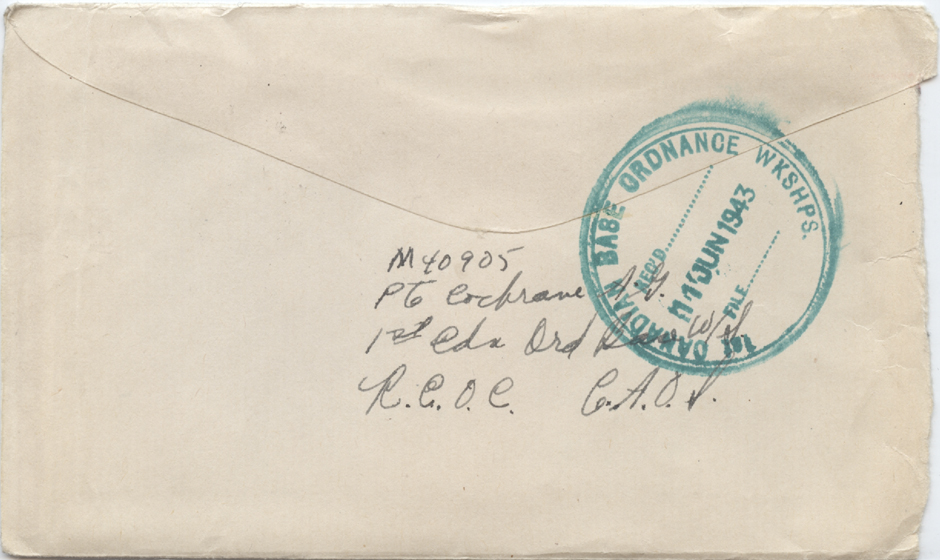 1st CANADIAN BASE ORDNANCE WKSHPS.
REC'D
11 JUN 1943
FILE
M40905
Pte Cochrane A.G.
1st Cdn Ord Base W/S
R.C.O.C. C.A.O.S.